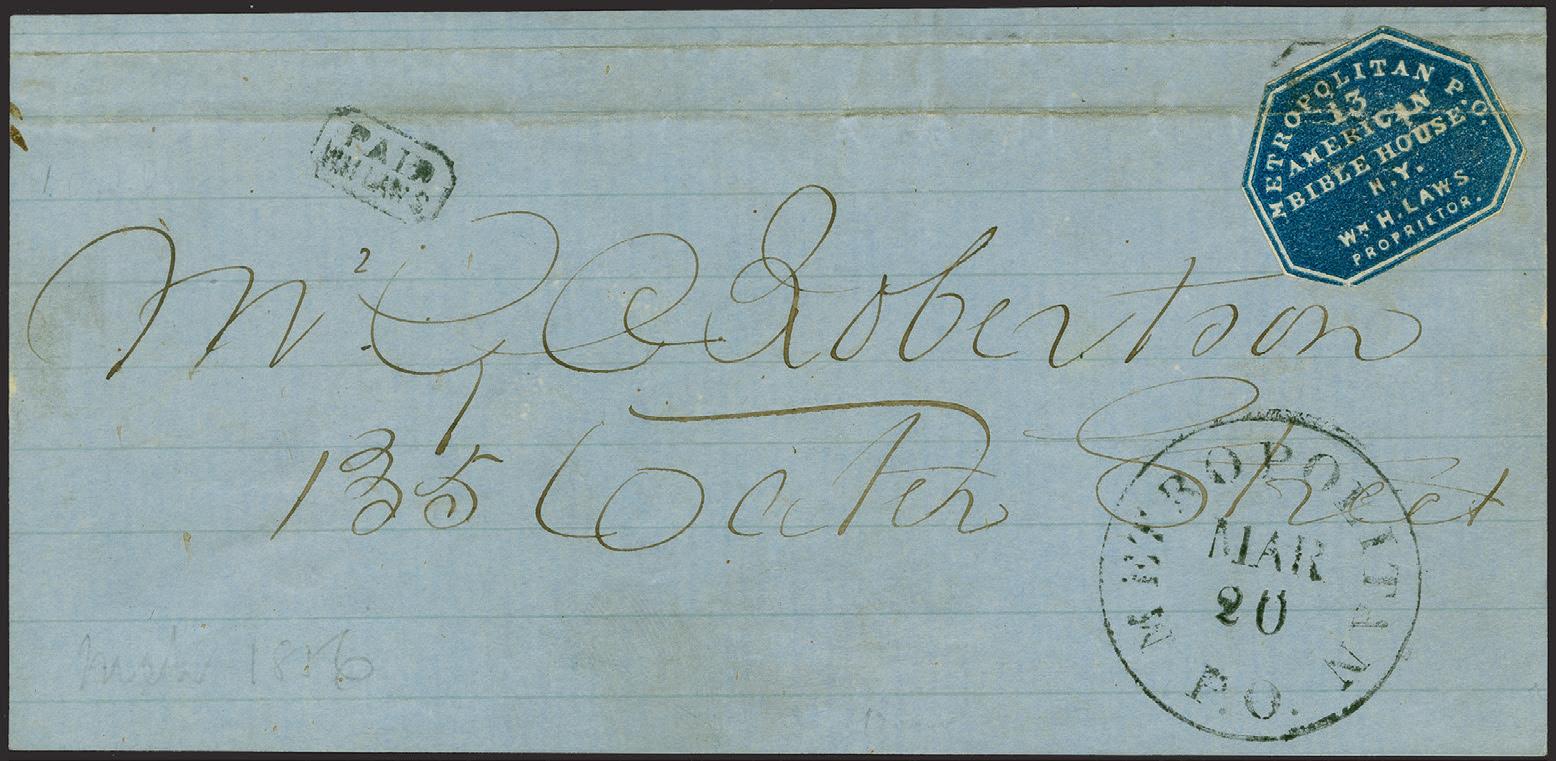 METROPOLITAN P.O.
13
AMERICAN
BIBLE HOUSE.
N.Y.
WM H. LAWS.
PROPRIETOR.
PAID
WM LAWS
Mr. C C Robertson
135 Water Street
METROPOLITAN
MAR
20
P.O.
1856